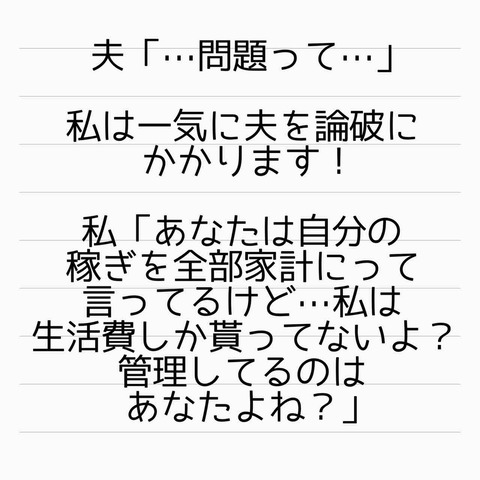 夫「…問題って…」
私は一気に夫を論破に
かかります！
私「あなたは自分の
稼ぎを全部家計にって
言ってるけど…私は
生活費しか貰ってないよ？
管理してるのは
あなたよね？」